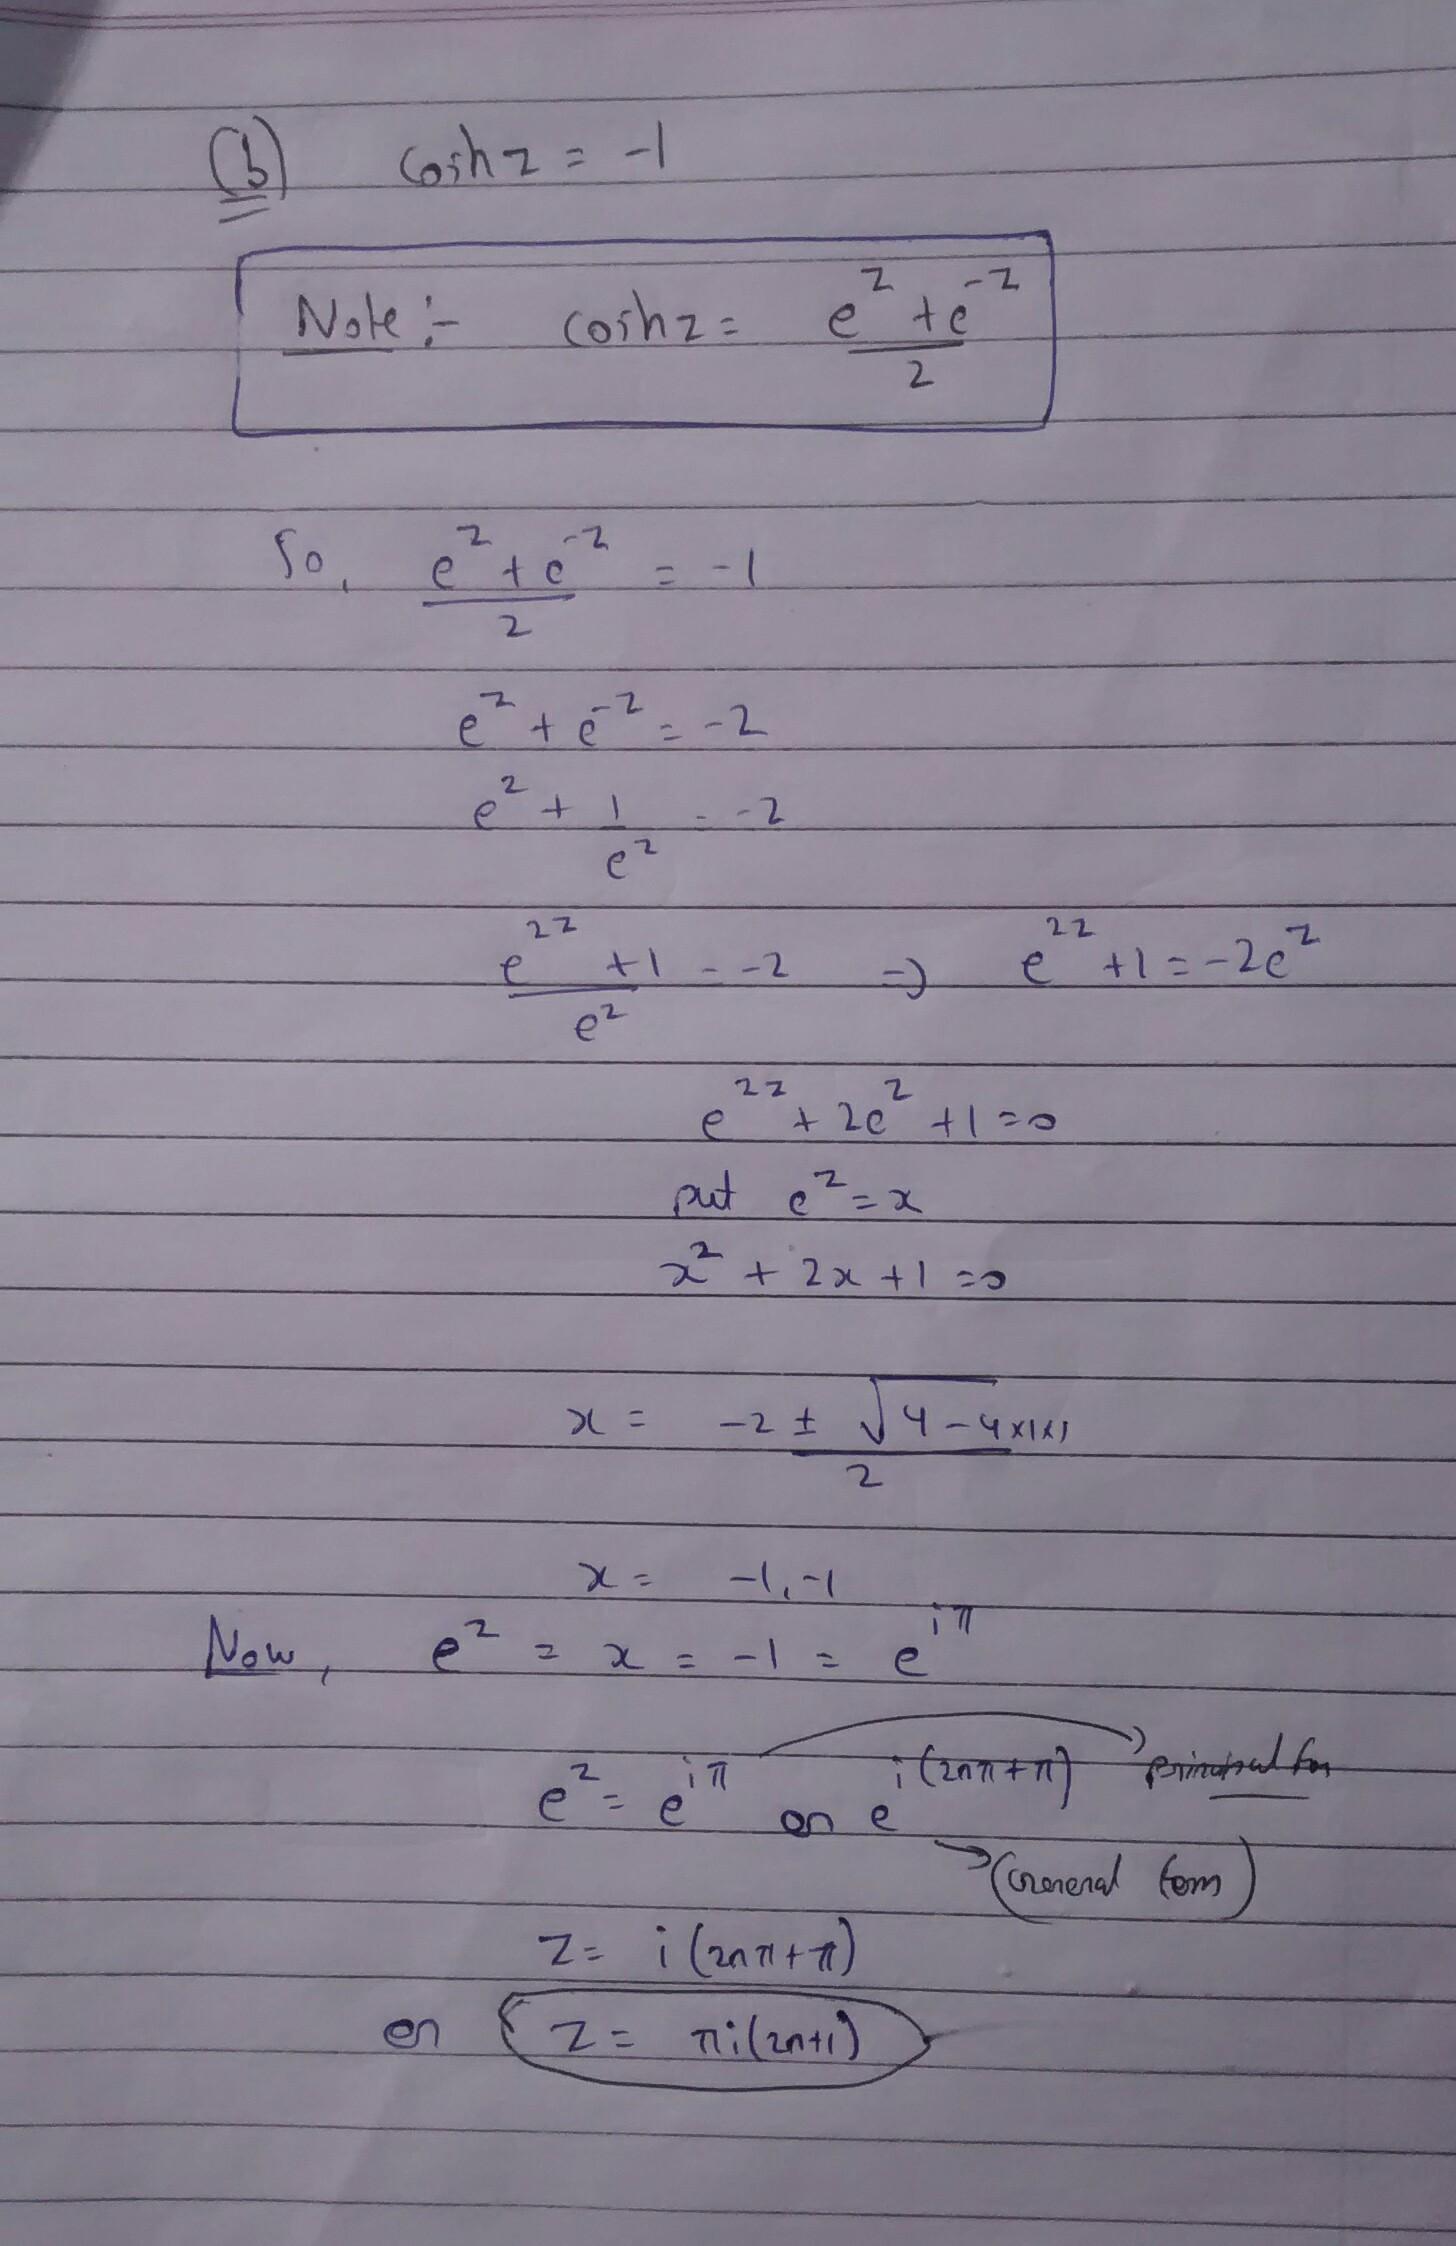 (b) cosh z = -1
Note :- cosh z = (e^z + e^-z)/2
So, (e^z + e^-z)/2 = -1
e^z + e^-z = -2
e^z + 1/e^z = -2
(e^2z + 1)/e^z = -2 => e^2z + 1 = -2e^z
e^2z + 2e^z + 1 = 0
put e^z = x
x^2 + 2x + 1 = 0
x = (-2 ± √(4 - 4×1×1))/2
x = -1, -1
Now, e^z = x = -1 = e^iπ
e^z = e^iπ or e^i(2nπ+π) → principal for
→ (General form)
z = i(2nπ+π)
or z = πi(2n+1)